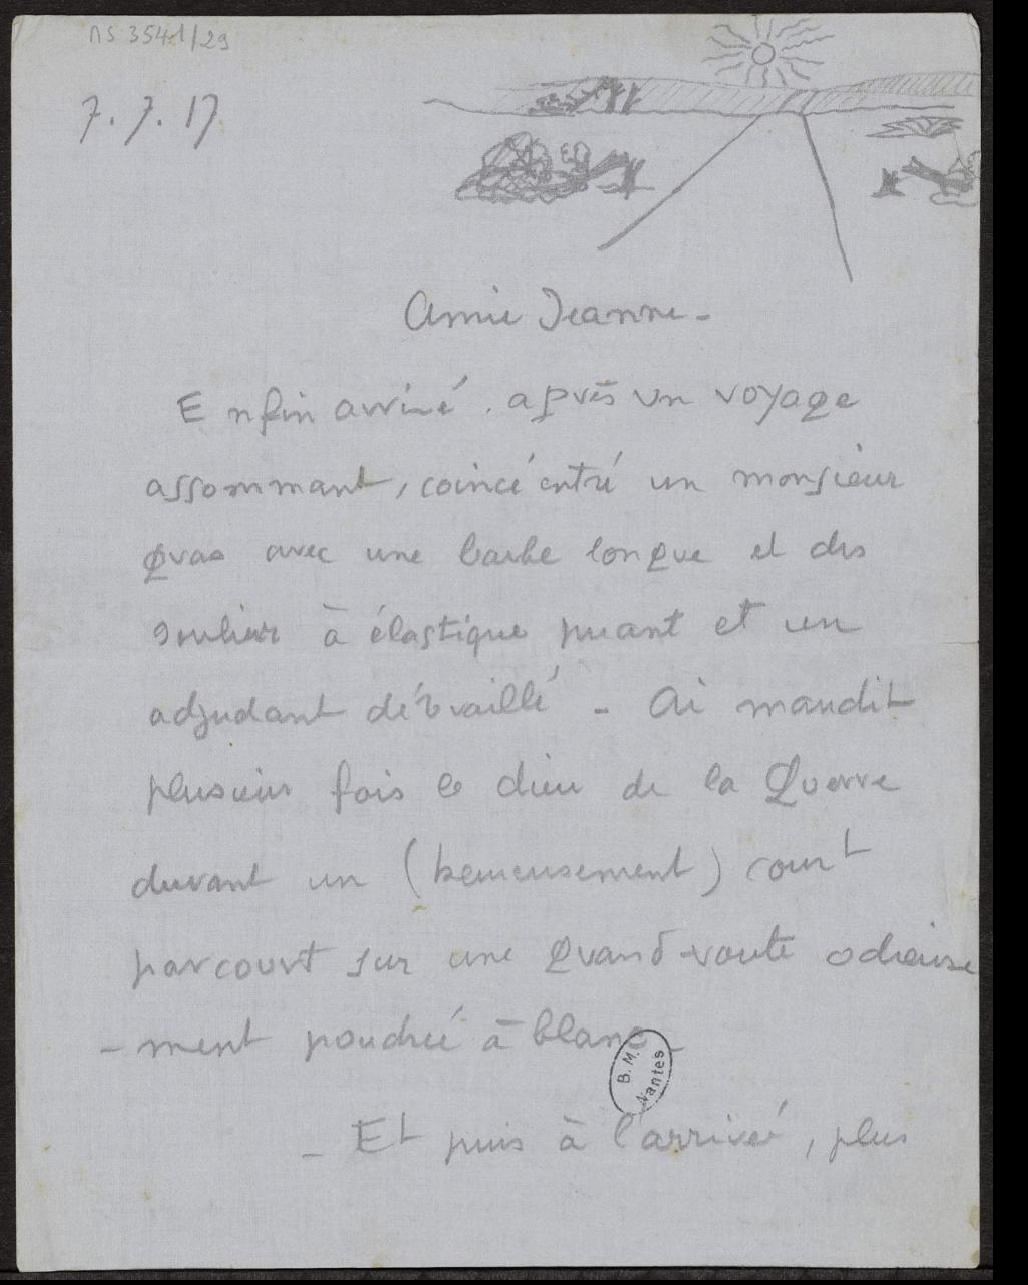 MS 3541/29
7.7.17
Amie Jeanne -
Enfin arrivé. après un voyage
assommant, coincé entré un monsieur
gras avec une barbe longue et des
soulier à élastique puant et un
adjudant débraillé - Ai maudit
plusieurs fois le dieu de la Guerre
durant un (heureusement) court
parcourt sur une grand-route odieuse
- ment poudrée à blanc -
B. M.
Nantes
- Et puis à l'arrivée, plus